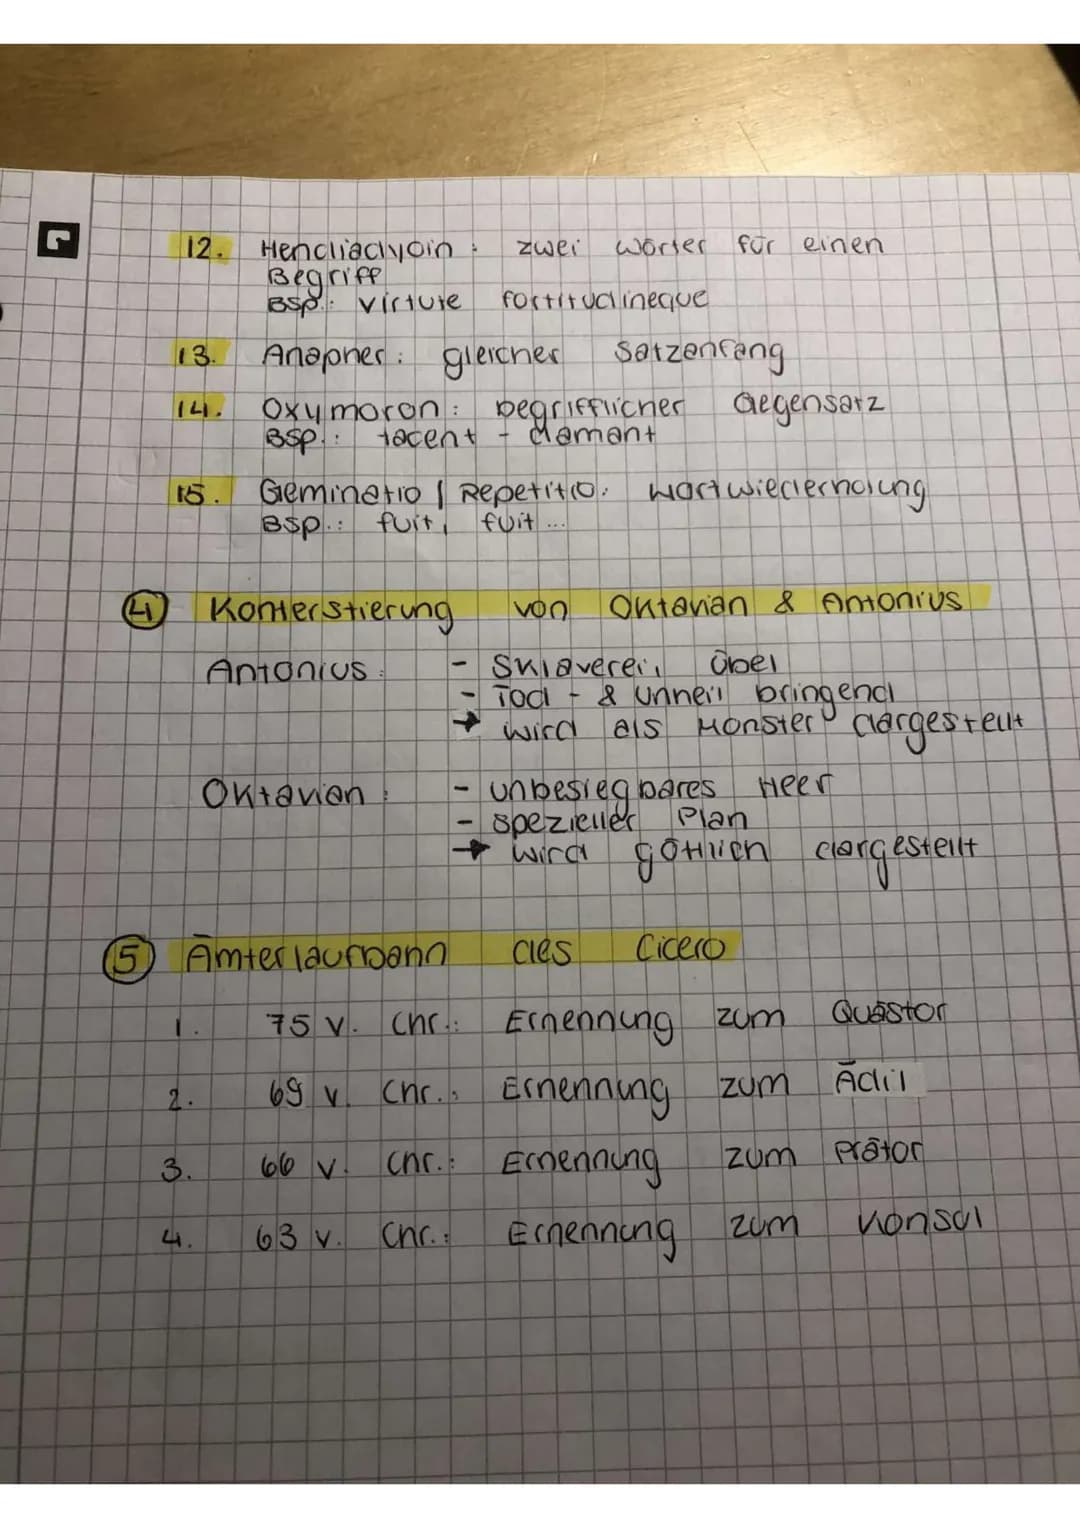 12. Hendiadyoin: zwei Wörter für einen
Begriff
Bsp.: virtute fortitudineque
13. Anapher: gleicher Satzanfang
14. Oxymoron: begrifflicher Gegensatz
Bsp.: tacent - clamant
15. Geminatio | Repetitio: Wortwiederholung
Bsp.: fuit, fuit ...
4 Konterstierung von Oktavian & Antonius
Antonius: - Sklaverei, Übel
- Tod - & Unheil bringend
→ wird als Monster dargestellt
Oktavian: - unbesiegbares Heer
- spezieller Plan
→ wird göttlich dargestellt
5 Ämterlaufbahn des Cicero
1. 75 v. Chr.: Ernennung zum Quästor
2. 69 v. Chr.: Ernennung zum Ädil
3. 66 v. Chr.: Ernennung zum Prätor
4. 63 v. Chr.: Ernennung zum Konsul